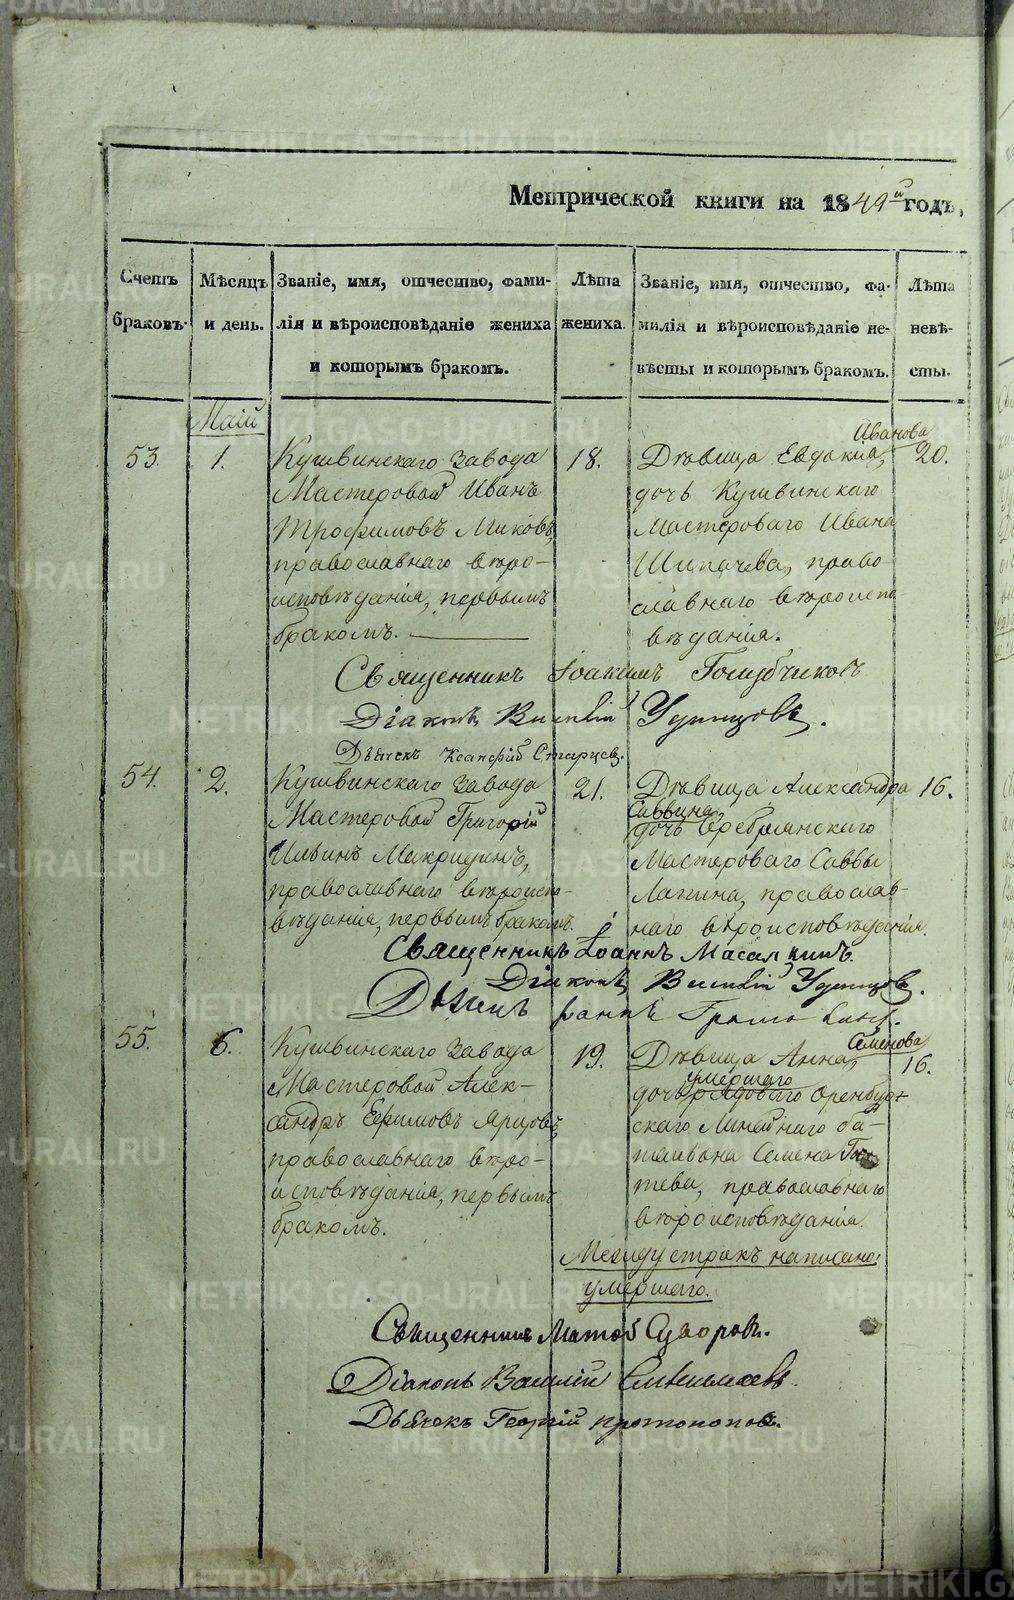 Метрической книги на 1849й годъ,
Счетъ браковъ.
Мѣсяцъ и день.
Званіе, имя, отчество, фами-
лія и вѣроисповѣданіе жениха
и которымъ бракомъ.
Лѣта жениха.
Званіе, имя, отчество, фа-
милія и вѣроисповѣданіе не-
вѣсты и которымъ бракомъ.
Лѣта невѣ-
сты.
Маій
53. 1.
Кушвинскаго завода
Мастеровой Иванъ
Трофимовъ Миковъ,
православнаго вѣро-
исповѣданія, первымъ
бракомъ.
18.
Иванова
Дѣвица Евдокія,
дочь Кушвинскаго
Мастероваго Ивана
Шипачева, право-
славнаго вѣроиспо
вѣданія.
20.
Священникъ Іоакимъ Голубчиковъ
Діаконъ Василій Удинцовъ.
Дьячекъ Старцев.
54. 2.
Кушвинскаго завода
Мастеровой Григорій
Ильинъ Макридинъ,
православнаго вѣроиспо-
вѣданія, первымъ бракомъ.
21.
Дѣвица Александра
Саввина
дочь Серебрянскаго
Мастероваго Саввы
Лапина, православ-
наго вѣроисповѣданія.
16.
Священникъ Іоаннъ Масалкинъ.
Діаконъ Василій Удинцовъ.
55. 6.
Кушвинскаго завода
Мастеровой Алек-
сандръ Ефимовъ Ярцовъ,
православнаго вѣро-
исповѣданія, первымъ
бракомъ.
19.
Семенова
Дѣвица Анна,
умершаго
дочь рядоваго Оренбур-
скаго Линейнаго ба-
таліона Семена
тева, православнаго
вѣроисповѣданія.
16.
Между строкъ написано:
умершаго.
Священникъ Матѳей Суворовъ.
Діаконъ Василій
Дьячокъ Георгій Протопоповъ.
METRIKI.GASO-URAL.RU